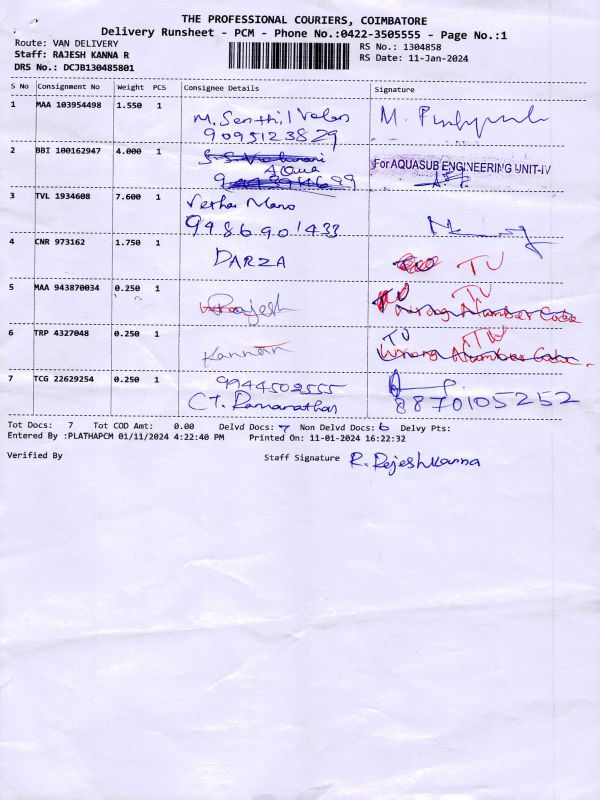 THE PROFESSIONAL COURIERS, COIMBATORE
Delivery Runsheet - PCM - Phone No.:0422-3505555 - Page No.:1
Route: VAN DELIVERY
Staff: RAJESH KANNA R
DRS No.: DCJB130485801
RS No.: 1304858
RS Date: 11-Jan-2024
S No Consignment No Weight PCS Consignee Details Signature
1 MAA 103954498 1.550 1 M. Senthil Velan M.
9095123829
2 BBI 100162947 4.000 1 Aqua For AQUASUB ENGINEERING UNIT-IV
3 TVL 1934608 7.600 1 Vetha Mano
9486901433
4 CNR 973162 1.750 1 DARZA TU
5 MAA 943870034 0.250 1 Rajesh TU TU
Wrong Number Code
6 TRP 4327048 0.250 1 Kannan TU
Wrong Number Code.
7 TCG 22629254 0.250 1 9944502555
CT. Ramanathan 8870105252
Tot Docs: 7 Tot COD Amt: 0.00 Delvd Docs: 7 Non Delvd Docs: 6 Delvy Pts:
Entered By :PLATHAPCM 01/11/2024 4:22:40 PM Printed On: 11-01-2024 16:22:32
Verified By Staff Signature R. Rajeshkanna